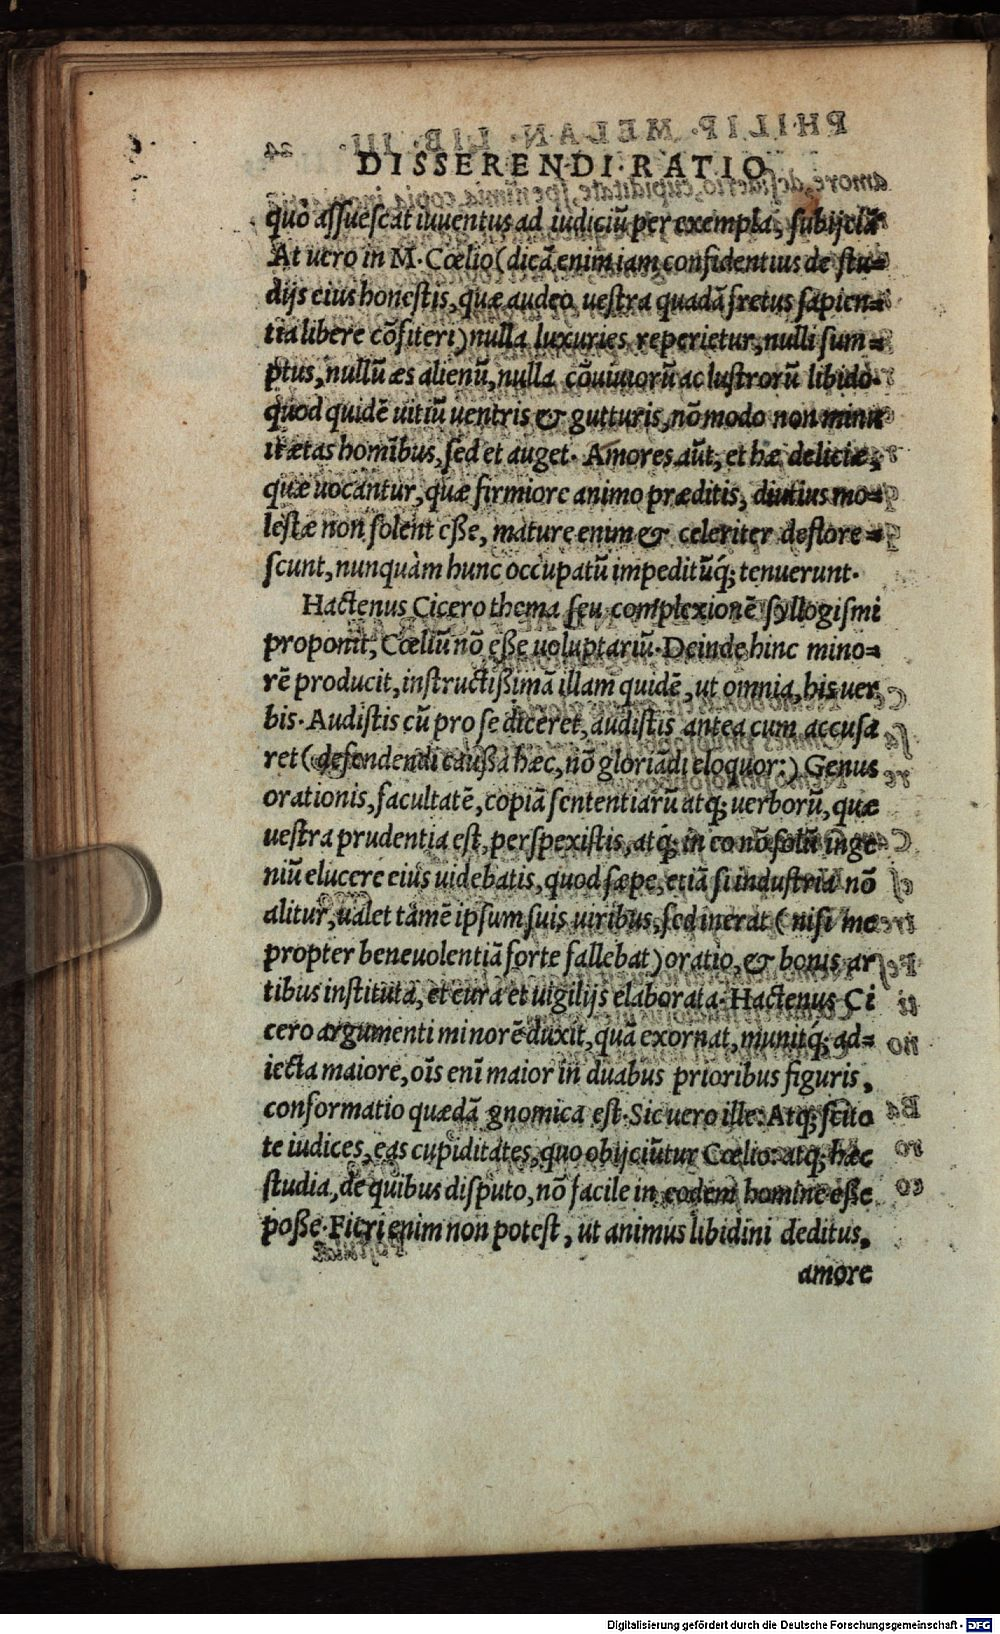 DISSERENDI·RATIO
quo assuescat iuuentus ad iudiciū per exempla, subijciā
At uero in M. Cœlio (dicā enim iam confidentius de stu=
dijs eius honestis, quæ audeo uestra quadā fretus sapien=
tia libere cōfiteri) nulla luxuries reperietur, nulli sum=
ptus, nullū æs alienū, nulla cōuiuiorū ac lustrorū libido.
quod quidē uitiū uentris & gutturis, nō modo non minu
it ætas homībus, sed et auget. Amores aūt, et hæ deliciæ,
quæ uocantur, quæ firmiore animo præditis, diutius mo=
lestæ non solent eße, mature enim & celeriter deflore=
scunt, nunquàm hunc occupatū impeditūq́; tenuerunt.
Hactenus Cicero thema seu complexionē syllogismi
proponit, Cœliū nō eße uoluptariū. Deinde hinc mino=
rē producit, instructißimā illam quidē, ut omnia, his uer
bis. Audistis cū pro se diceret, audistis antea cum accusa
ret (defendendi caußa hæc, nō gloriādi eloquor:) Genus
orationis, facultatē, copiā sententiarū atq; uerborū, quæ
uestra prudentia est, perspexistis, atq́; in eo nō solū inge
niū elucere eius uidebatis, quod sæpe, etiā si industria nō
alitur, ualet tamē ipsum suis uiribus, sed inerat (nisi me
propter beneuolentiā forte fallebat) oratio, & bonis ar
tibus instituta, et cura et uigilijs elaborata. Hactenus Ci
cero argumenti minorē duxit, quā exornat, munitq́; ad=
iecta maiore, oīs enī maior in duabus prioribus figuris,
conformatio quædā gnomica est. Sic uero ille. Atq; scito
te iudices, eas cupiditates, quo obijciūtur Cœlio. atq; hæc
studia, de quibus disputo, nō facile in eodem homine eße
poße. Fieri enim non potest, ut animus libidini deditus,
amore
Digitalisierung gefördert durch die Deutsche Forschungsgemeinschaft - DFG